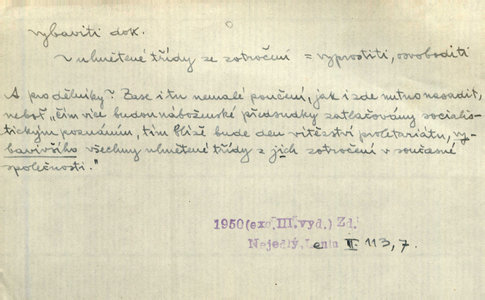 vybaviti dok.
v uhnětené třídy ze zotročení = vyprostiti, osvoboditi
A pro dělníky? Zase i tu nemalé poučení, jak i zde nutno nasadit,
neboť "čím více budou náboženské předsudky zatlačovány socialis-
tickým poznáním, tím blíž bude den vítězství proletariátu, vy-
bavivšího všechny uhnětené třídy z jich zotročení v současné
společnosti."
1950 (exc. III. vyd.) Zd.
Nejedlý, Lenin II. 113, 7.